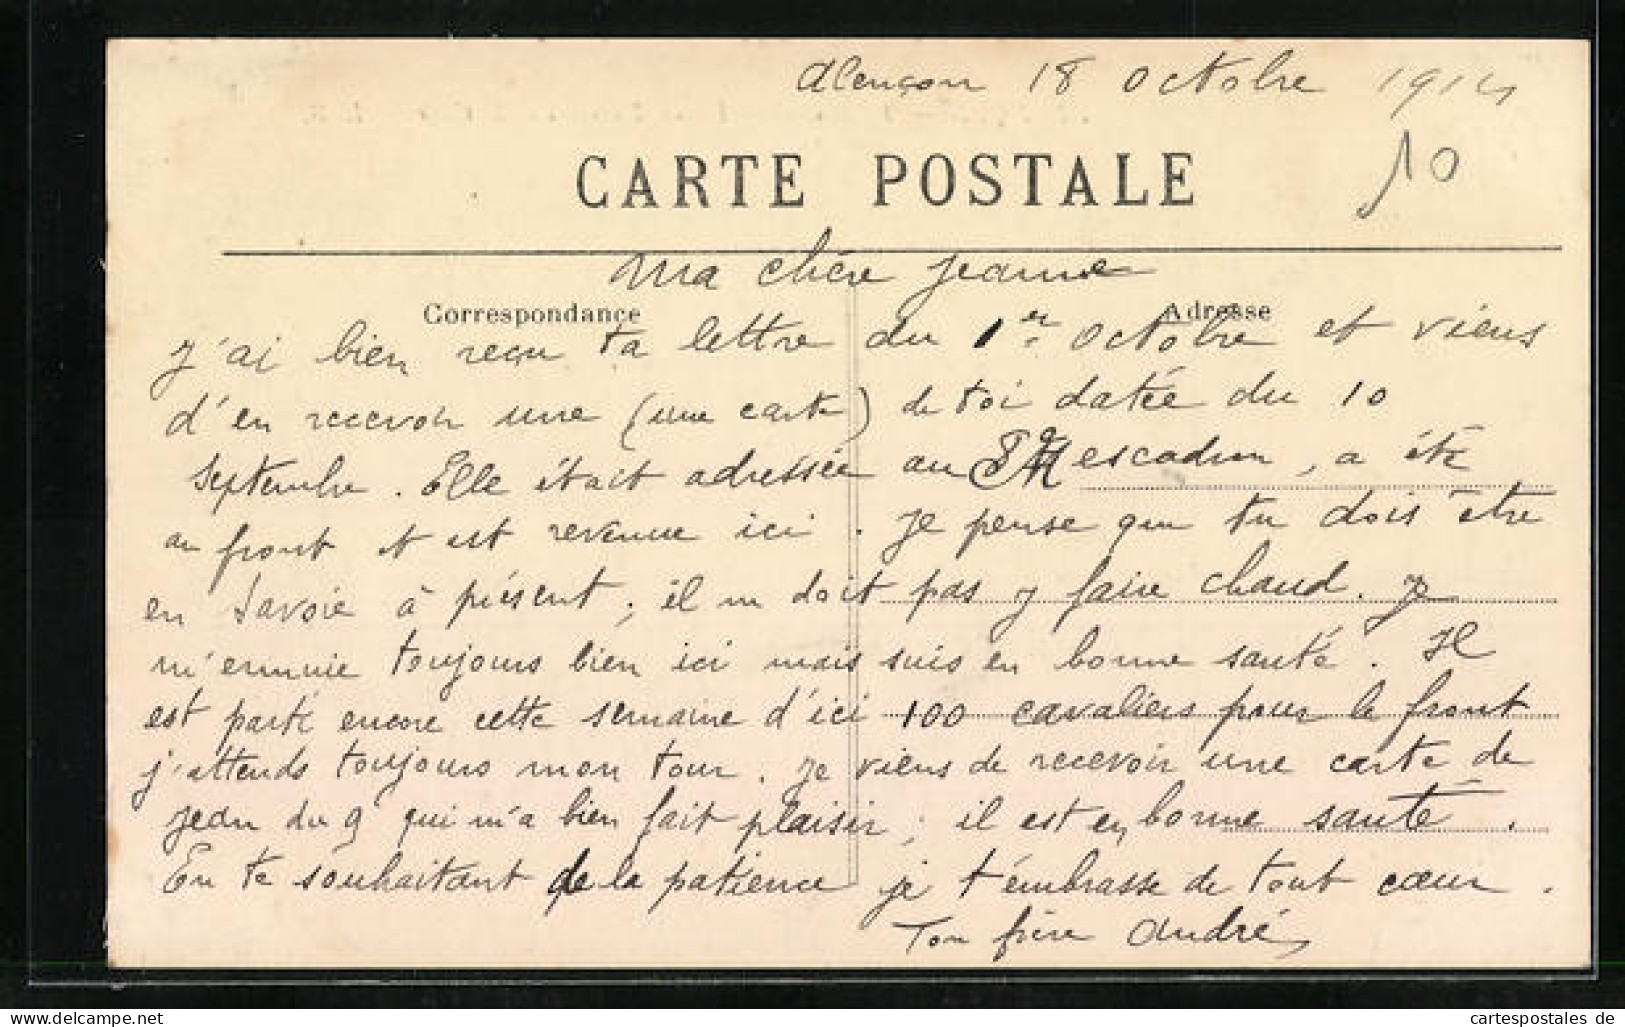 Alençon 18 Octobre 1914
10
CARTE POSTALE
Ma chère Jeanne
Correspondance
Adresse
J'ai bien reçu ta lettre du 1er Octobre et viens
d'en recevoir une (une carte) de toi datée du 10
Septembre. Elle était adressée au escadron, a été
au front et est revenue ici. Je pense que tu dois être
en Savoie à présent; il ne doit pas y faire chaud. Je
m'ennuie toujours bien ici mais suis en bonne santé. Il
est parti encore cette semaine d'ici 100 cavaliers pour le front
j'attends toujours mon tour. Je viens de recevoir une carte de
Jean du 9 qui m'a bien fait plaisir; il est en bonne santé.
En te souhaitant de la patience je t'embrasse de tout cœur.
Ton frère André
www.cartespostales.de
cartespostales de